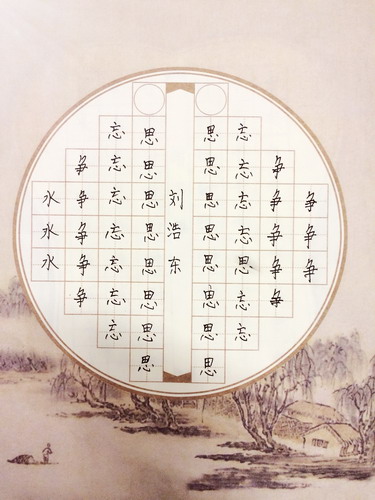 争争争
争争争争争
忘忘忘忘思忘忘
思思思思思思思思
刘浩东
思思思思思思思思
忘忘忘忘忘忘忘
争争争争争
水水水